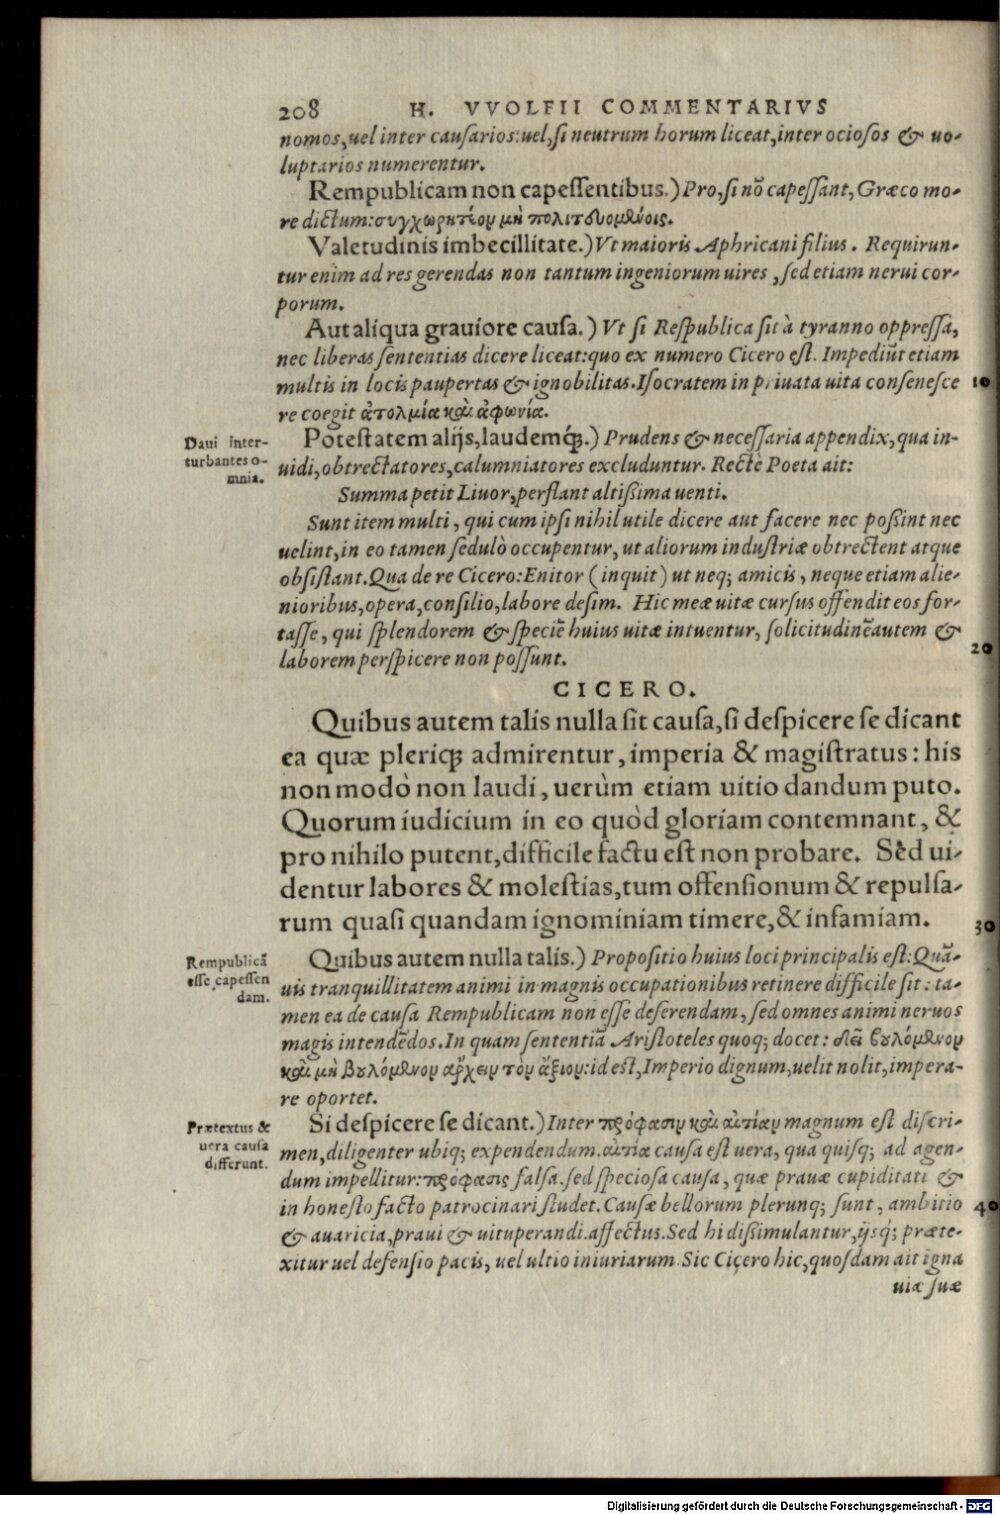 208 H. VVOLFII COMMENTARIVS
nomos, uel inter causarios: uel, si neutrum horum liceat, inter ociosos & uo-
luptarios numerentur.
Rempublicam non capessentibus.) Pro, si nō capessant, Græco mo-
re dictum: συγχωρητέον μὴ πολιτευομένοις.
Valetudinis imbecillitate.) Vt maioris Aphricani filius. Requirun-
tur enim ad res gerendas non tantum ingeniorum uires, sed etiam nerui cor-
porum.
Aut aliqua grauiore causa.) Vt si Respublica sit à tyranno oppressa,
nec liberas sententias dicere liceat: quo ex numero Cicero est. Impediūt etiam
multis in locis paupertas & ignobilitas. Isocratem in priuata uita consenesce 10
re coegit ἀτολμία καὶ ἀφωνία.
Daui inter-
turbantes o-
mnia.
Potestatem alijs, laudemq́;.) Prudens & necessaria appendix, qua in-
uidi, obtrectatores, calumniatores excluduntur. Rectè Poeta ait:
Summa petit Liuor, perflant altißima uenti.
Sunt item multi, qui cum ipsi nihil utile dicere aut facere nec poßint nec
uelint, in eo tamen sedulò occupentur, ut aliorum industriæ obtrectent atque
obsistant. Qua de re Cicero: Enitor (inquit) ut neq; amicis, neque etiam alie-
nioribus, opera, consilio, labore desim. Hic meæ uitæ cursus offendit eos for-
tasse, qui splendorem & speciē huius uitæ intuentur, solicitudinē autem &
laborem perspicere non possunt. 20
CICERO.
Quibus autem talis nulla sit causa, si despicere se dicant
ea quæ pleriq; admirentur, imperia & magistratus: his
non modò non laudi, uerùm etiam uitio dandum puto.
Quorum iudicium in eo quòd gloriam contemnant, &
pro nihilo putent, difficile factu est non probare. Sed ui-
dentur labores & molestias, tum offensionum & repulsa-
rum quasi quandam ignominiam timere, & infamiam. 30
Rempublicā
esse capessen
dam.
Quibus autem nulla talis.) Propositio huius loci principalis est: Quā-
uis tranquillitatem animi in magnis occupationibus retinere difficile sit: ta-
men ea de causa Rempublicam non esse deserendam, sed omnes animi neruos
magis intendēdos. In quam sententiā Aristoteles quoq; docet: δεῖ βουλόμενον
καὶ μὴ βουλόμενον ἄρχειν τὸν ἄξιον: id est, Imperio dignum, uelit nolit, impera-
re oportet.
Prætextus &
uera causa
differunt.
Si despicere se dicant.) Inter πρόφασιν καὶ αἰτίαν magnum est discri-
men, diligenter ubiq; expendendum. αἰτία causa est uera, qua quisq; ad agen-
dum impellitur: πρόφασις falsa, sed speciosa causa, quæ prauæ cupiditati &
in honesto facto patrocinari studet. Causæ bellorum plerunq; sunt, ambitio 40
& auaricia, praui & uituperandi affectus. Sed hi dißimulantur, ijsq́; præte-
xitur uel defensio pacis, uel ultio iniuriarum. Sic Cicero hic, quosdam ait igna
uiæ suæ
Digitalisierung gefördert durch die Deutsche Forschungsgemeinschaft - DFG